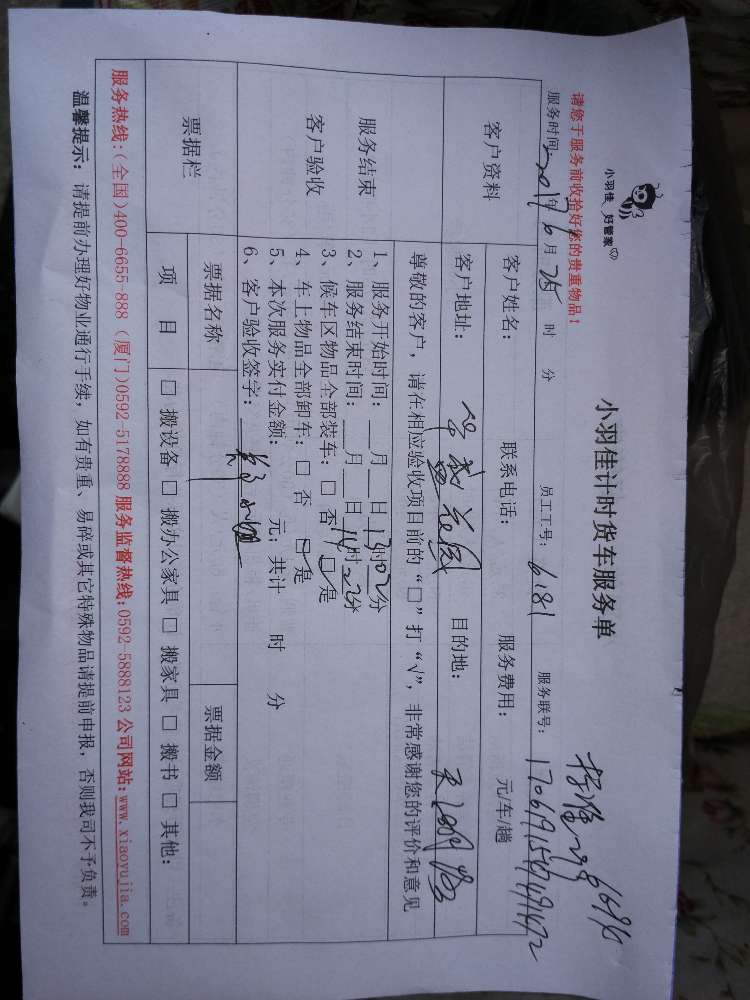 小羽佳 好管家
小羽佳计时货车服务单
请您于服务前收拾好您的贵重物品！
服务时间: 2017年6月25 时 分 员工工号: 6181 服务联号:
客户资料
客户姓名: 联系电话: 服务费用: 元/车/趟
客户地址: 目的地: 天湖路
尊敬的客户，请在相应验收项目前的“□”打“√”，非常感谢您的评价和意见
服务结束
客户验收
1、服务开始时间: __月__日13时02分
2、服务结束时间: __月__日14时22分
3、候车区物品全部装车: □ 否 □是
4、车上物品全部卸车: □ 否 □是
5、本次服务实付金额: 元; 共计 时 分
6、客户验收签字:
票据栏
票据名称 票据金额
项 目 □ 搬设备 □ 搬办公家具 □ 搬家具 □ 搬书 □ 其他:
服务热线:(全国)400-6655-888 (厦门)0592-5178888 服务监督热线:0592-5888123 公司网站:www.xiaoyujia.com
温馨提示: 请提前办理好物业通行手续，如有贵重、易碎或其它特殊物品请提前申报，否则我司不予负责。